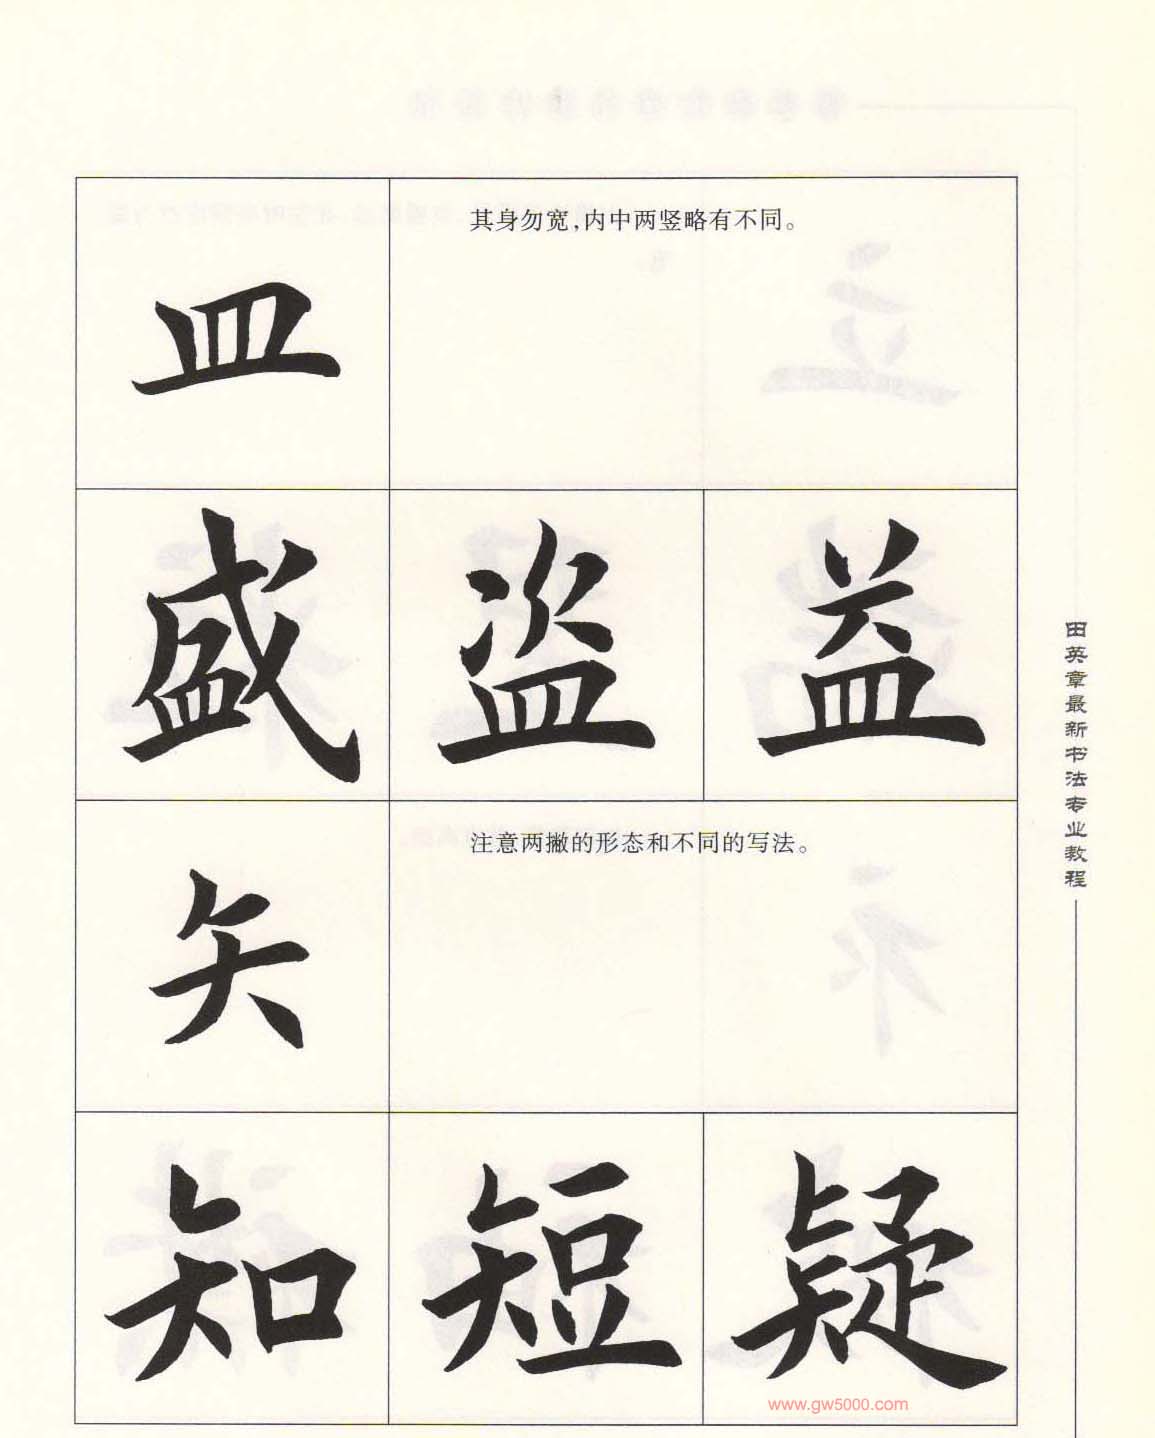 皿
其身勿宽，内中两竖略有不同。
盛 盗 益
矢
注意两撇的形态和不同的写法。
知 短 疑
田英章最新书法专业教程
www.gw5000.com